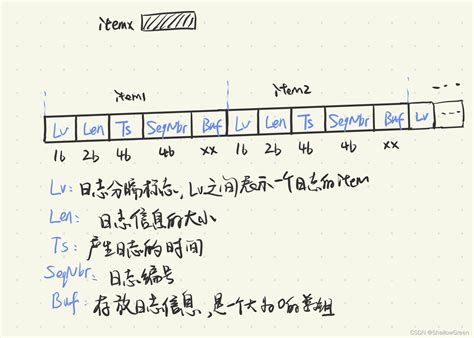 itemx
item1 item2
Lv Len Ts SeqNbr Buf Lv Len Ts SeqNbr Buf Lv ...
1b 2b 4b 4b xx 1b 2b 4b 4b xx
Lv: 日志分隔标志, Lv之间表示一个日志的item
Len: 日志信息的大小
Ts: 产生日志的时间
SeqNbr: 日志编号
Buf: 存放日志信息, 是一个大小为0的数组
CSDN @ShallowGreen